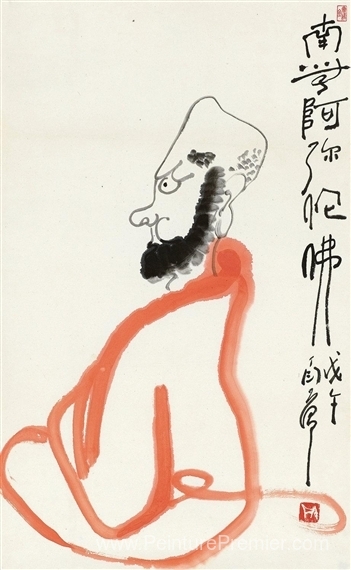 南無阿弥陀佛
戊午
www.PeinturePremier.com